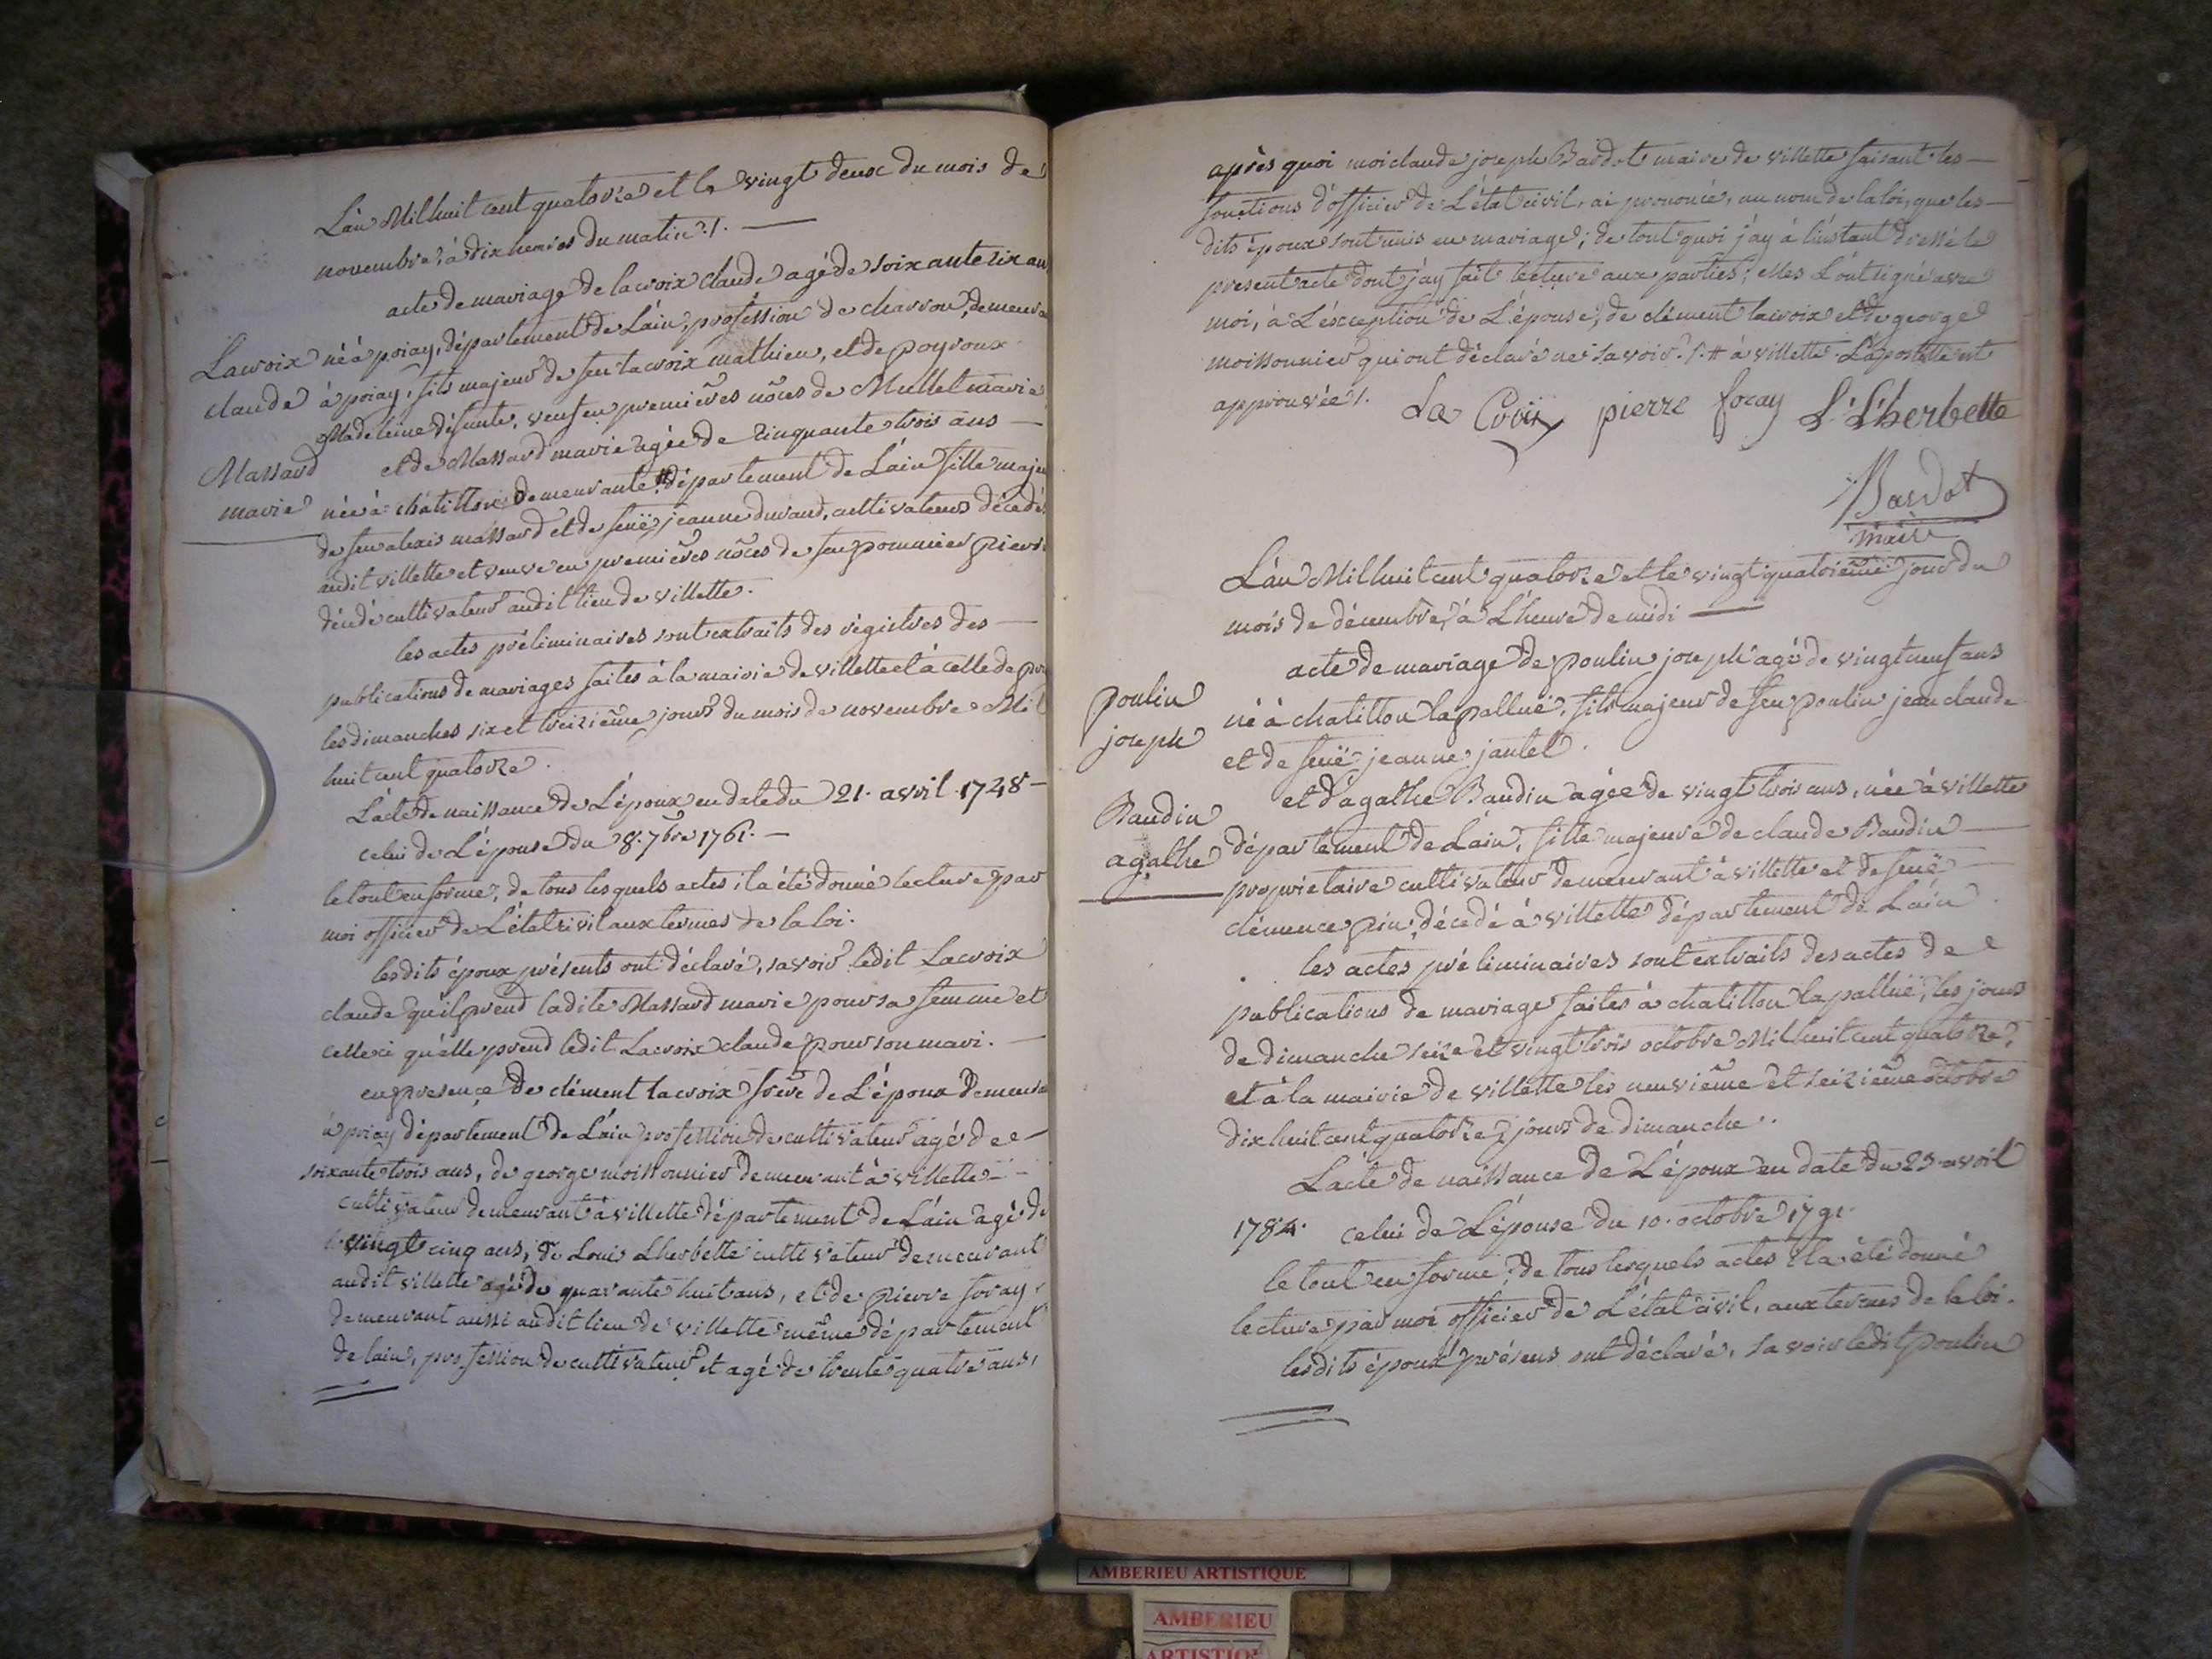 L'an Mil huit cent quatorze et le vingt deux du mois de
novembre, à dix heures du matin ./. —
acte de mariage de lacroix claude agé de soixante six an
Lacroix
claude
né à priay, département de L'ain, profession de charron, demeura
à priay, fils majeur de feu lacroix mathieu, et de poyroux
Madeleine défunte, veuf en premières nôces de Mullet marie
Massard
marie
et de Massard marie agée de cinquante trois ans —
née à chatillon demeurante # département de L'ain fille majeu
de feu alexis massard et de feuë jeanne durand, cultivateurs décédés
audit villette et veuve en premières nôces de feu pommier pierre
décédé cultivateur audit lieu de villette.
les actes préliminaires sont extraits des régistres des —
publications de mariages faites à la mairie de villette et à celle de pri
les dimanches six et treizième jours du mois de novembre Mil
huit cent quatorze.
L'acte de naissance de L'époux en date du 21. avril 1748 —
celui de L'épouse du 8. 7bre 1761. —
le tout en forme, de tous lesquels actes il a été donné lecture par
moi officier de L'état civil aux termes de la loi.
lesdits époux présents ont déclaré, savoir ledit Lacroix
claude qu'il prend ladite Massard marie pour sa femme et
celleci qu'elle prend ledit Lacroix claude pour son mari. —
en presence de clément lacroix frère de L'époux demeura
à priay département de L'ain profession de cultivateur agé de —
soixante trois ans, de george moissonnier demeurant à villette —
cultivateur demeurant à villette département de L'ain agé de
vingt cinq ans, de Louis Lherbette cultivateur demeurant
audit villette agé de quarante huit ans, et de pierre foray
demeurant aussi audit lieu de villette même département
de lain, profession de cultivateur et agé de trente quatre ans,
après quoi moi claude joseph Bardot maire de villette faisant les —
fonctions d'officier de L'état civil, ai prononcé, au nom de la loi, que les —
dits époux sont unis en mariage; de tout quoi j'ay à l'instant dressé le
present acte dont j'ay fait lecture aux parties; elles L'ont signé avec
moi, à L'exception de L'épouse, de clément lacroix et de george
moissonnier qui ont déclaré ne savoir ./. # à villette L'apostille est
approuvée /.
La Croix pierre foray L. Lherbette
Bardot
maire
L'an Mil huit cent quatorze et le vingt quatrième jour du
mois de décembre, à L'heure de midi —
acte de mariage de poulin joseph agé de vingt neuf ans
poulin
joseph
né à chatillon la palluë, fils majeur de feu poulin jean claude
et de feuë jeanne jantet.
Baudin
agathe
et d'agathe Baudin agée de vingt trois ans, née à villette
département de L'ain, fille majeure de claude Baudin —
propriétaire cultivateur demeurant à villette et de feuë
clémence pin, décedé à villette département de L'ain.
les actes préliminaires sont extraits des actes de
publications de mariage faites à chatillon la palluë, les jours
de dimanche seize et vingt trois octobre Mil huit cent quatorze,
et à la mairie de villette les neuvième et seizième octobre
dix huit cent quatorze, jours de dimanche.
L'acte de naissance de L'époux en date du 23 avril
1784. celui de L'épouse du 10. octobre 1791.
le tout en forme, de tous lesquels actes il a été donné
lecture par moi officier de L'état civil, aux termes de la loi.
lesdits époux présens ont déclaré, savoir ledit poulin
AMBERIEU ARTISTIQUE
AMBERIEU
ARTISTIQ